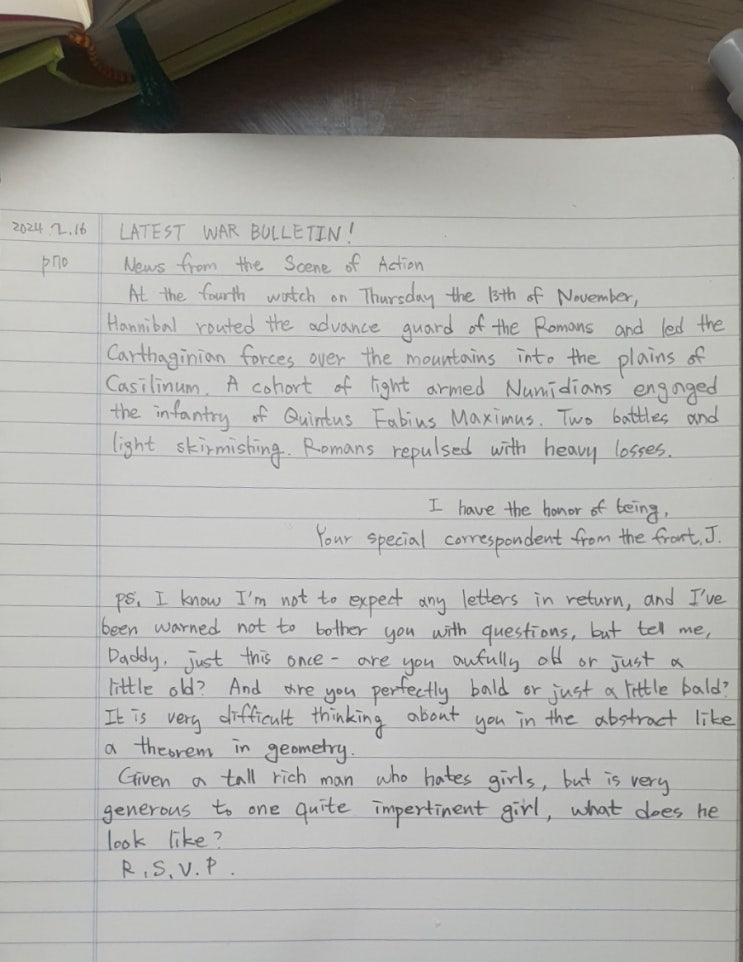 2024.2.16 LATEST WAR BULLETIN!
p70 News from the Scene of Action
At the fourth watch on Thursday the 13th of November,
Hannibal routed the advance guard of the Romans and led the
Carthaginian forces over the mountains into the plains of
Casilinum. A cohort of light armed Numidians engaged
the infantry of Quintus Fabius Maximus. Two battles and
light skirmishing. Romans repulsed with heavy losses.
I have the honor of being,
Your special correspondent from the front, J.
ps. I know I'm not to expect any letters in return, and I've
been warned not to bother you with questions, but tell me,
Daddy, just this once - are you awfully old or just a
little old? And are you perfectly bald or just a little bald?
It is very difficult thinking about you in the abstract like
a theorem in geometry.
Given a tall rich man who hates girls, but is very
generous to one quite impertinent girl, what does he
look like?
R.S.V.P.